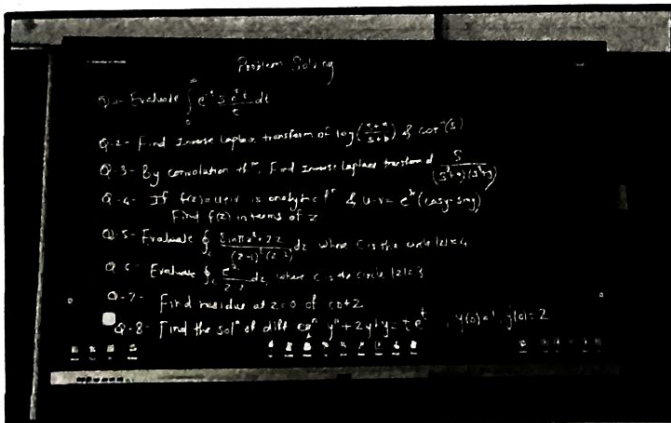 Problem Solving
Evaluate ∫₀^∞ e^-t dt
Q-2- Find Inverse Laplace transform of log((s+a)/(s+b)) & cot⁻¹(s)
Q-3- By convolution thᵐ, Find Inverse Laplace transform of s
Q-4- If f(z)=u+iv is analytic fⁿ & u-v = eˣ(cosy-siny)
Find f(z) in terms of z
Q-5- Evaluate ∮c dz where C is the circle |z|=4
Q-6- Evaluate ∮c dz, where c is the circle |z|=3
Q-7- Find residue at z=0 of cot z
Q-8- Find the solⁿ of diff eqⁿ y"+2y'+y= t e^-t, y(0)=1, y'(0)=2